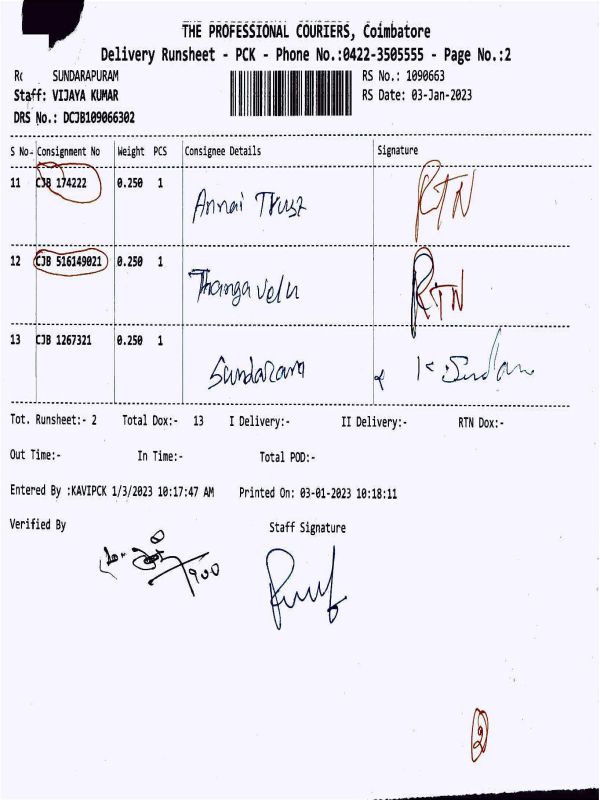 THE PROFESSIONAL COURIERS, Coimbatore
Delivery Runsheet - PCK - Phone No.:0422-3505555 - Page No.:2
SUNDARAPURAM RS No.: 1090663
Staff: VIJAYA KUMAR RS Date: 03-Jan-2023
DRS No.: DCJB109066302
S No- Consignment No Weight PCS Consignee Details Signature
11 CJB 174222 0.250 1 Annai Trust RTN
12 CJB 516149021 0.250 1 Thangavelu RTN
13 CJB 1267321 0.250 1 Sundaram
Tot. Runsheet:- 2 Total Dox:- 13 I Delivery:- II Delivery:- RTN Dox:-
Out Time:- In Time:- Total POD:-
Entered By :KAVIPCK 1/3/2023 10:17:47 AM Printed On: 03-01-2023 10:18:11
Verified By Staff Signature
900
2